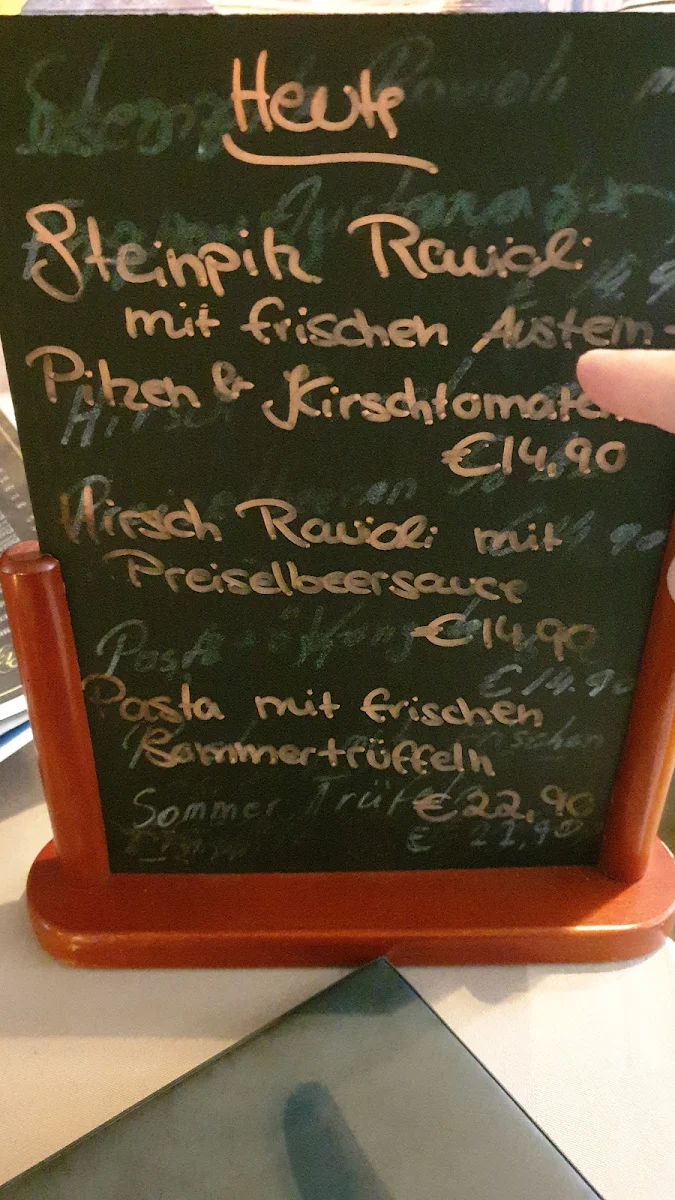 Heute
Steinpilz Ravioli
mit frischen Austern-
Pilzen & Kirschtomaten
€14,90
Hirsch Ravioli mit
Preiselbeersauce
€14,90
Pasta mit frischen
Sommertrüffeln
€22,90